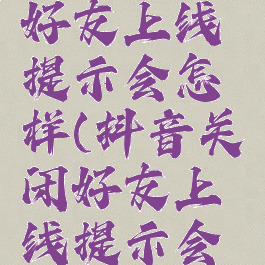 好友上线
提示会怎
样(抖音关
闭好友上
线提示会